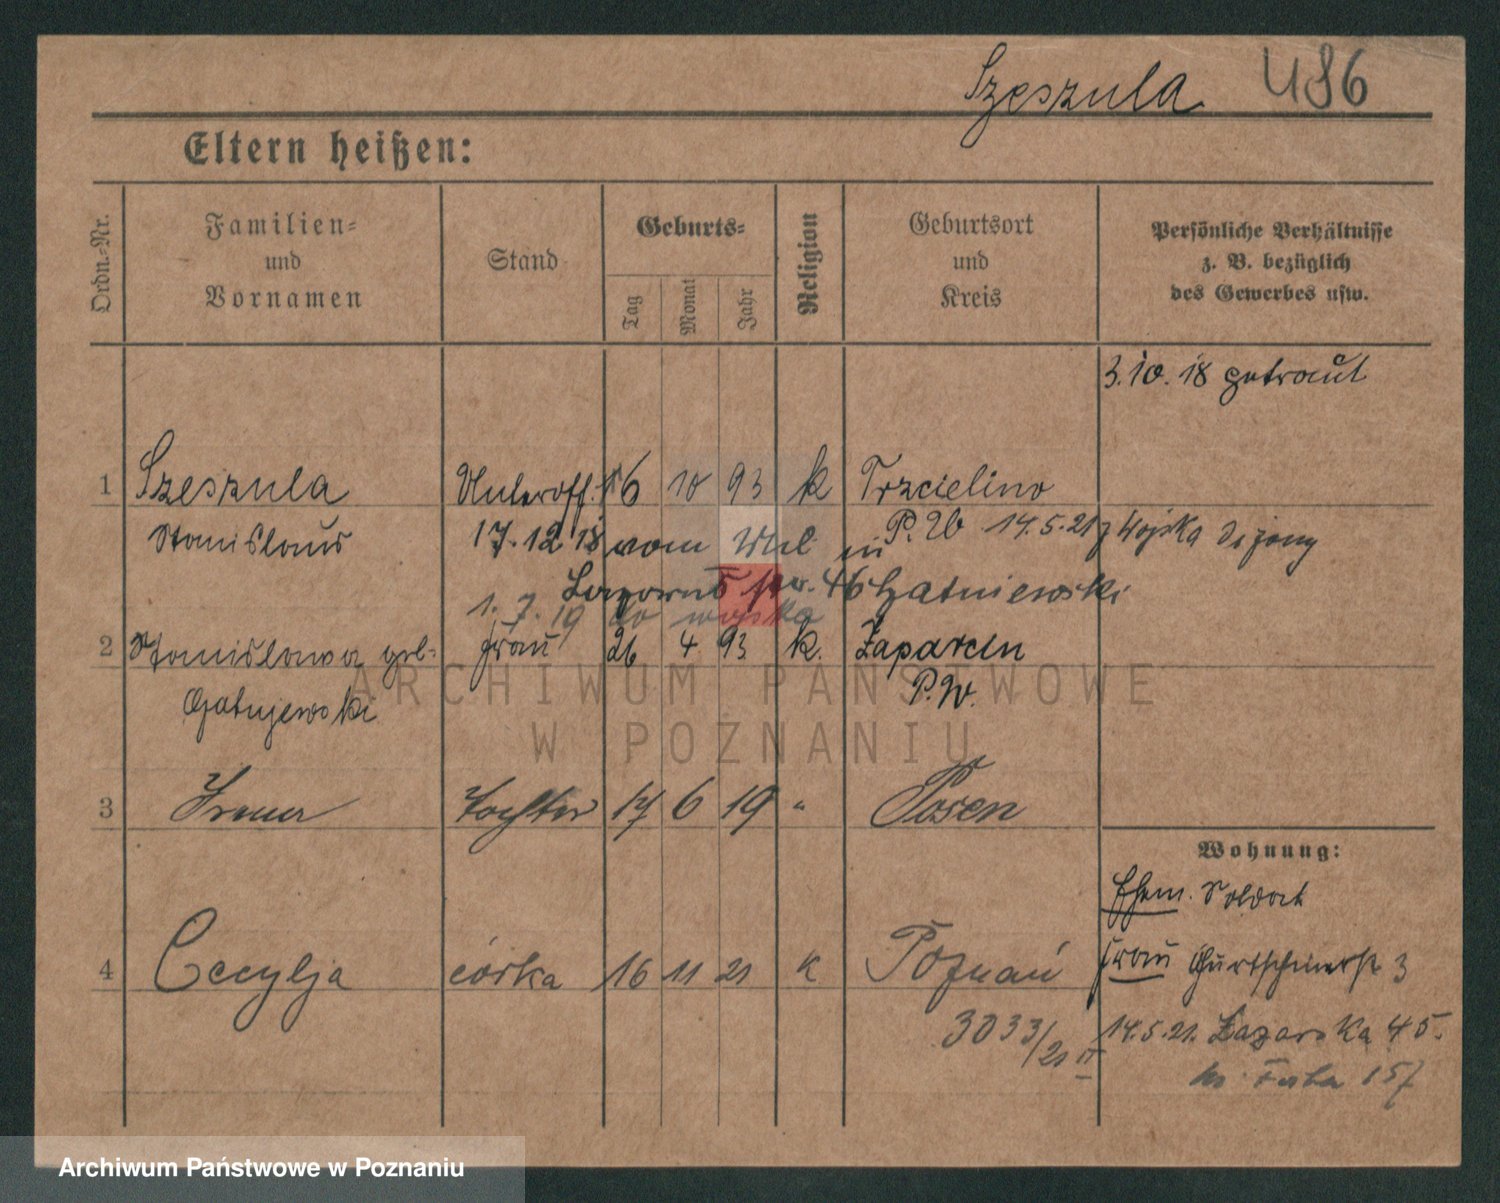 Szeszula 486
Eltern heißen:
Ordn.-Nr.
Familien-
und
Vornamen
Stand
Geburts-
Tag
Monat
Jahr
Religion
Geburtsort
und
Kreis
Persönliche Verhältnisse
z. B. bezüglich
des Gewerbes usw.
3.10.18 getraut
1 Szeszula Unteroff. 16 10 93 k Trzcielino
Stanislaus 17.12.18 vom Mil in P.W 14.5.21 z wojska
str. 46 Gatniewski
1.7.19 do wojska
2 Stanislawa geb- Frau 26 4 93 k. Zaparcin
Gatnjewski P.W.
3 Irena Tochter 17 6 19 " Posen
Wohnung:
Ehem. Soldat
4 Cecylja córka 16 11 21 k Poznań
Frau Gurtschinerstr 3
3033/21 II
14.5.21. Łazarska 45.
157
ARCHIWUM PAŃSTWOWE
W POZNANIU
Archiwum Państwowe w Poznaniu